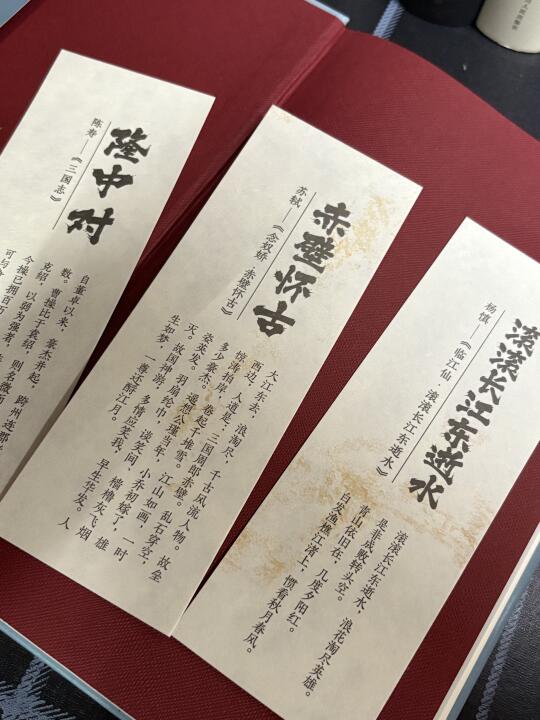 隆中对
陈寿——《三国志》
自董卓以来，豪杰并起，跨州连郡
数。曹操比于袁绍，则名微而
克绍，以弱为强者，
今操已拥百万
可与
赤壁怀古
苏轼——《念奴娇·赤壁怀古》
大江东去，浪淘尽，千古风流人物。故垒
西边，人道是，三国周郎赤壁。乱石穿空，
惊涛拍岸，卷起千堆雪。江山如画，一时
多少豪杰。遥想公瑾当年，小乔初嫁了，雄
姿英发。羽扇纶巾，谈笑间，樯橹灰飞烟
灭。故国神游，多情应笑我，早生华发。人
生如梦，一尊还酹江月。
滚滚长江东逝水
杨慎——《临江仙·滚滚长江东逝水》
滚滚长江东逝水，浪花淘尽英雄。
是非成败转头空。
青山依旧在，几度夕阳红。
白发渔樵江渚上，惯看秋月春风。